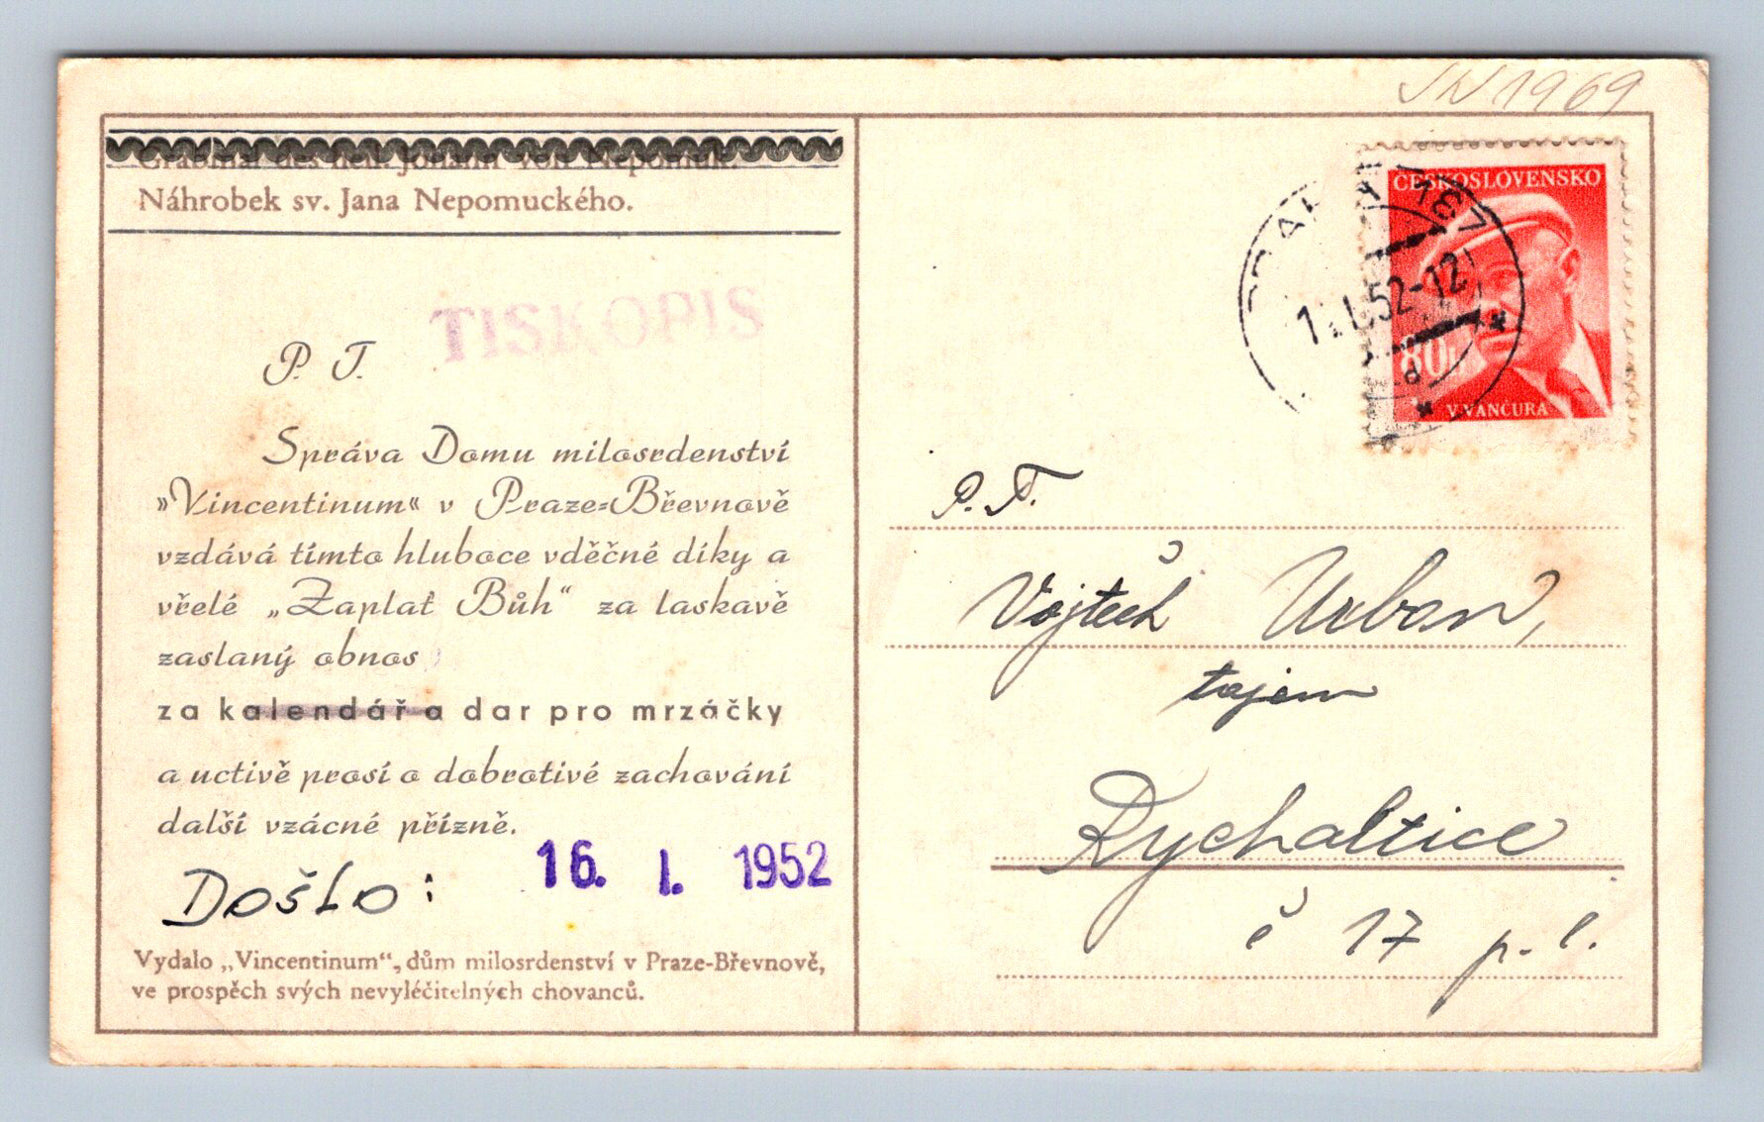 JN 1969
Grabmal des heil. Johann von Nepomuk.
Náhrobek sv. Jana Nepomuckého.
TISKOPIS
P. T.
Správa Domu milosrdenství
»Vincentinum« v Praze-Břevnově
vzdává tímto hluboce vděčné díky a
vřelé „Zaplať Bůh“ za laskavě
zaslaný obnos
za kalendář a dar pro mrzáčky
a uctivě prosí o dobrotivé zachování
další vzácné přízně.
Došlo: 16. I. 1952
Vydalo „Vincentinum“, dům milosrdenství v Praze-Břevnově,
ve prospěch svých nevyléčitelných chovanců.
ČESKOSLOVENSKO
80h
V. VANČURA
52-12
P. T.
Vojtěch Urban,
tajem
Rychaltice
č 17 p. l.